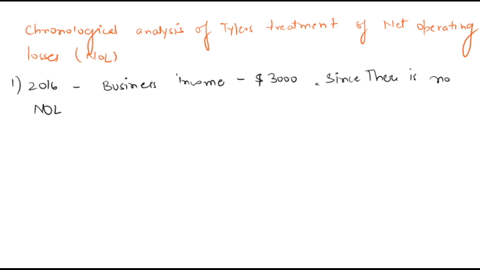 Chronological analysis of Tylers treatment of Net operating
losses (NOL)
1) 2016 - Business income - $3000 . Since There is no
NOL